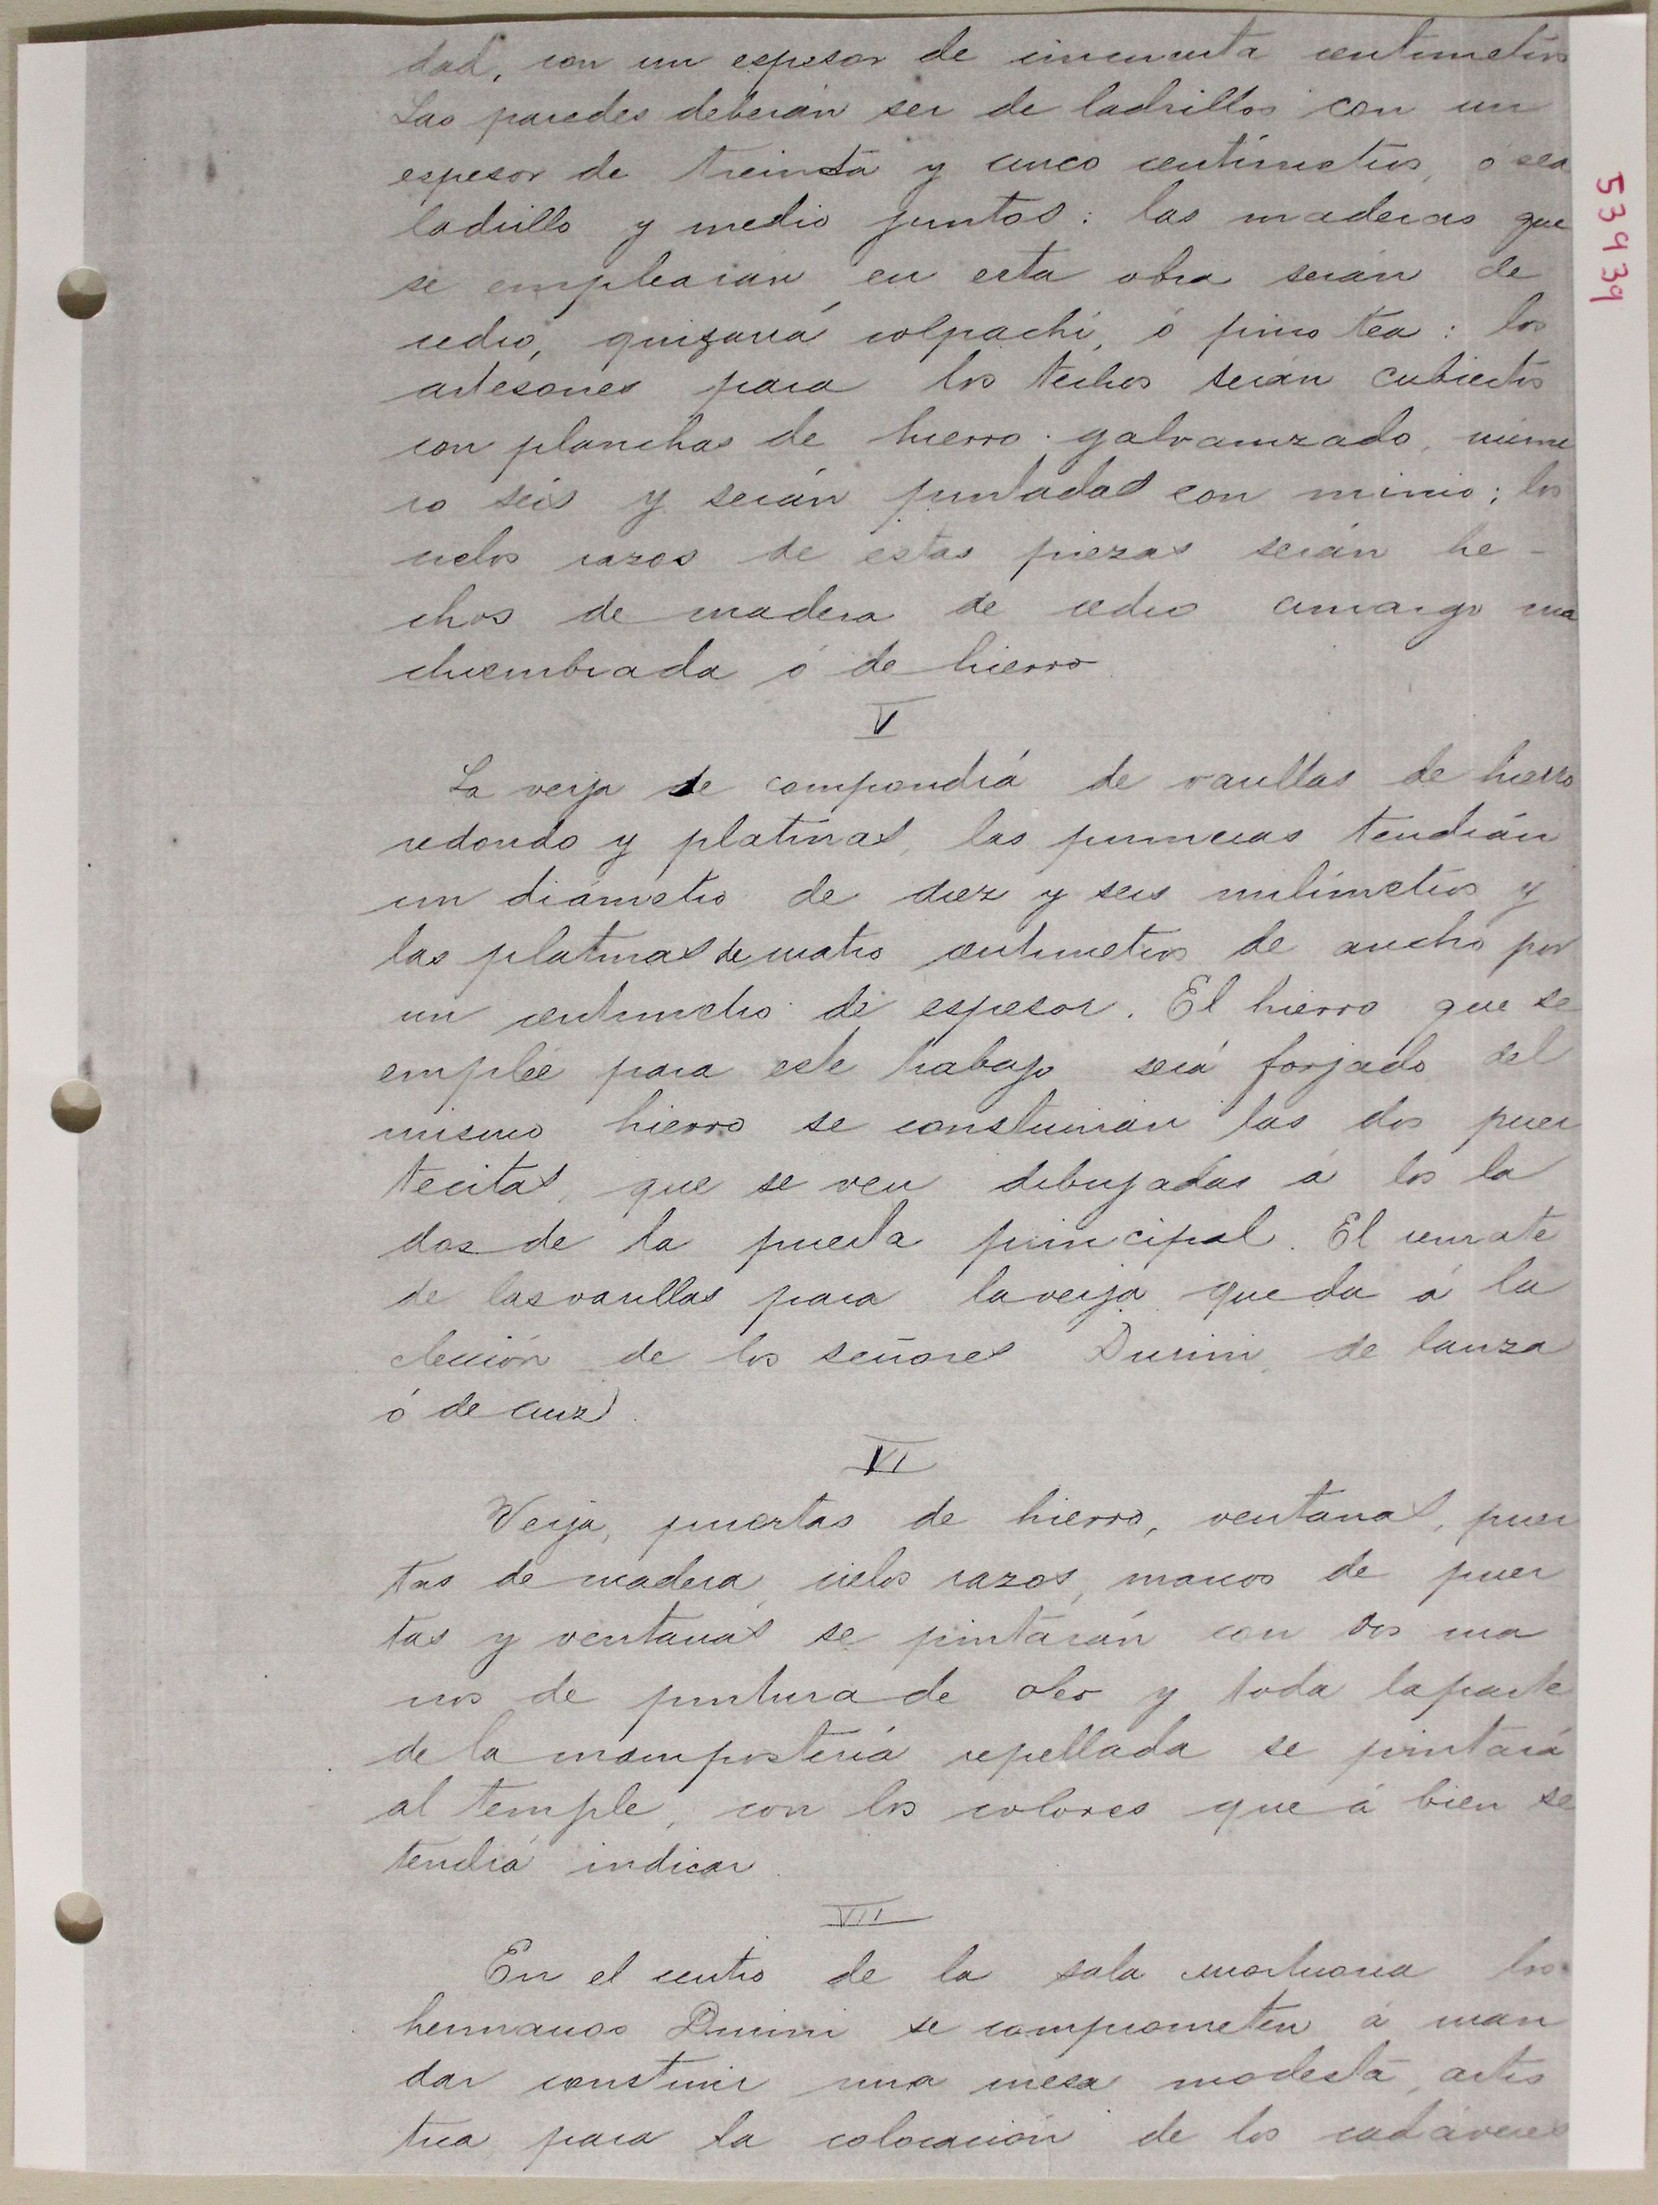 dad, con un espesor de cincuenta centimetros
Las paredes deberán ser de ladrillos con un
espesor de treinta y cinco centímetros, ó sea
ladrillo y medio juntos: las maderas que
se emplearán en esta obra serán de
cedro, quizarrá colpachí, ó pino tea: los
artesones para los techos serán cubiertos
con planchas de hierro galvanizado, núme
ro seis y serán pintadas con minio; los
cielos razos de estas piezas serán he-
chos de madera de cedro amargo ma
chiembrada ó de hierro
V
La verja se compondrá de varillas de hierro
redondo y platinas, las primeras tendrán
un diámetro de diez y seis milímetros y
las platinas de cuatro centimetros de ancho por
un centimetro de espesor. El hierro que se
emplée para este trabajo será forjado del
mismo hierro se construirán las dos puer
tecitas, que se ven dibujadas á los la
dos de la puerta principal. El remate
de las varillas para la verja queda á la
elección de los señores Durini, de lanza
ó de cruz.
VI
Verja, puertas de hierro, ventanas, puer
tas de madera, cielos razos, marcos de puer
tas y ventanas se pintarán con dos ma
nos de pintura de oleo y toda la parte
de la mampostería repellada se pintará
al temple, con los colores que á bien se
tendrá indicar.
VII
En el centro de la sala mortuoria los
hermanos Durini se comprometen á man
dar construir una mesa modesta, artís
tica para la colocación de los cadáveres
53939